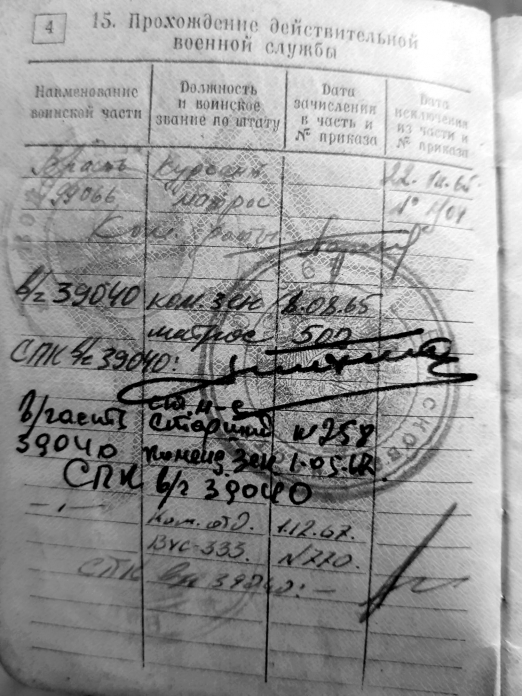 4
15. Прохождение действительной
военной службы
Наименование воинской части
Должность и воинское звание по штату
Дата зачисления в часть и № приказа
Дата исключения из части и № приказа
курсант 22.
99066 матрос №
Ком. роты
в/ч 39040 ком. зен 8.08.65
матрос 500
СПК в/ч 39040:
в/часть старший N 258
39040 коменд. зен 1.05.
СПК в/ч 39040
-"- Ком. отд. 1.12.67.
ВУС-333. N 220.
СПК в/ч 39040: -